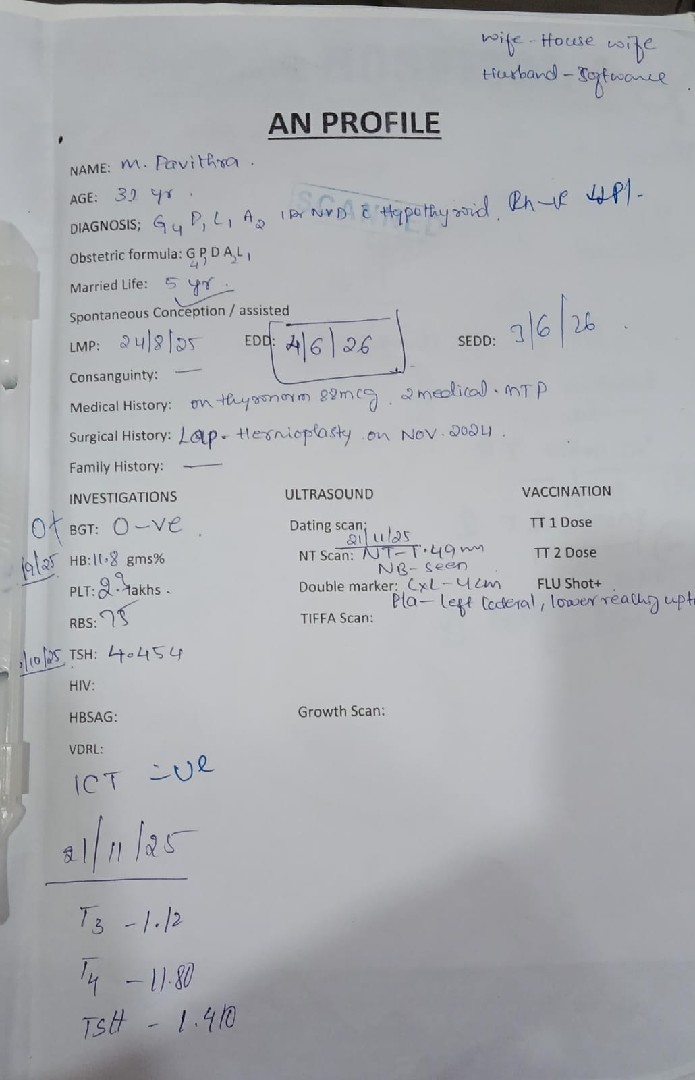 wife - House wife
Husband - Software
AN PROFILE
NAME: M. Pavithra.
AGE: yr.
SCANNED
DIAGNOSIS; G4 P1 L1 A2 NVD c Hypothyroid, Rh-ve
Obstetric formula: G4 P1 D A2 L1
Married Life: 5 yr.
Spontaneous Conception / assisted
LMP: 24/8/25 EDD: 4/6/26 SEDD: 3/6/26.
Consanguinty: —
Medical History: on thyronorm 88mcg, 2 medical. MTP
Surgical History: Lap. Hernioplasty on Nov. 2024.
Family History: —
INVESTIGATIONS ULTRASOUND VACCINATION
BGT: O-ve. Dating scan: TT 1 Dose
21/11/25
HB: 11.8 gms% NT Scan: NT- mm TT 2 Dose
NB- seen
PLT: lakhs. Double marker: CxL-4cm FLU Shot+
Pla- left lateral, lower reaching upto
RBS: 75 TIFFA Scan:
/10/25 TSH: 4.454
HIV:
HBSAG: Growth Scan:
VDRL:
ICT -ve
21/11/25
T3 - 1.12
T4 - 11.80
TSH - 1.410